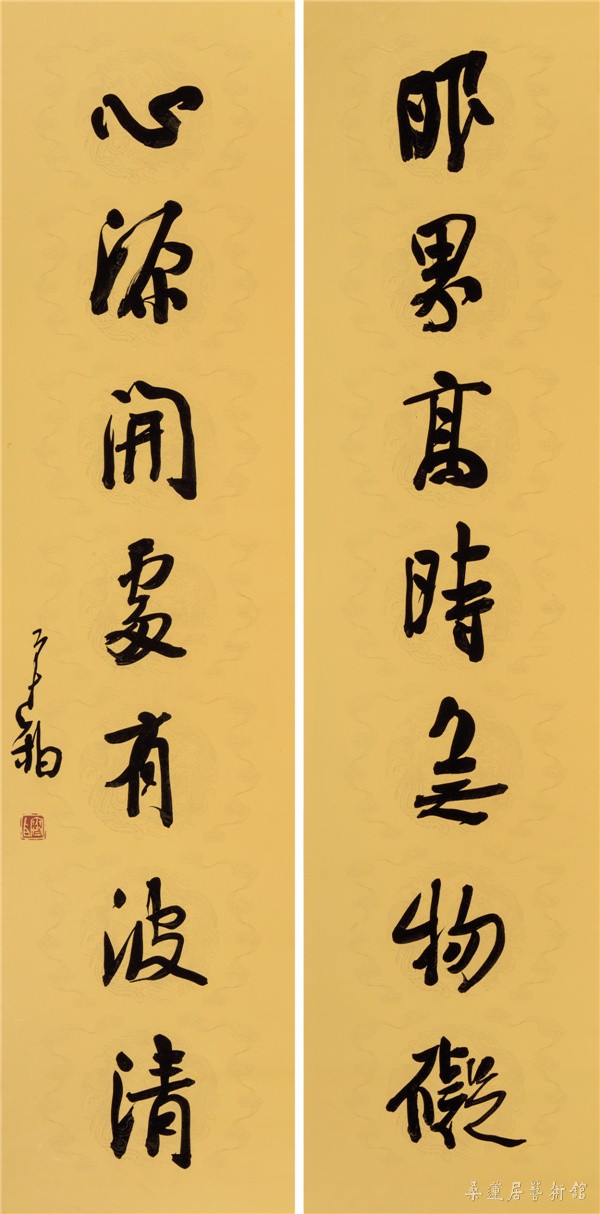 眼界高時無物礙
心源開處有波清
桑蓮居藝術館